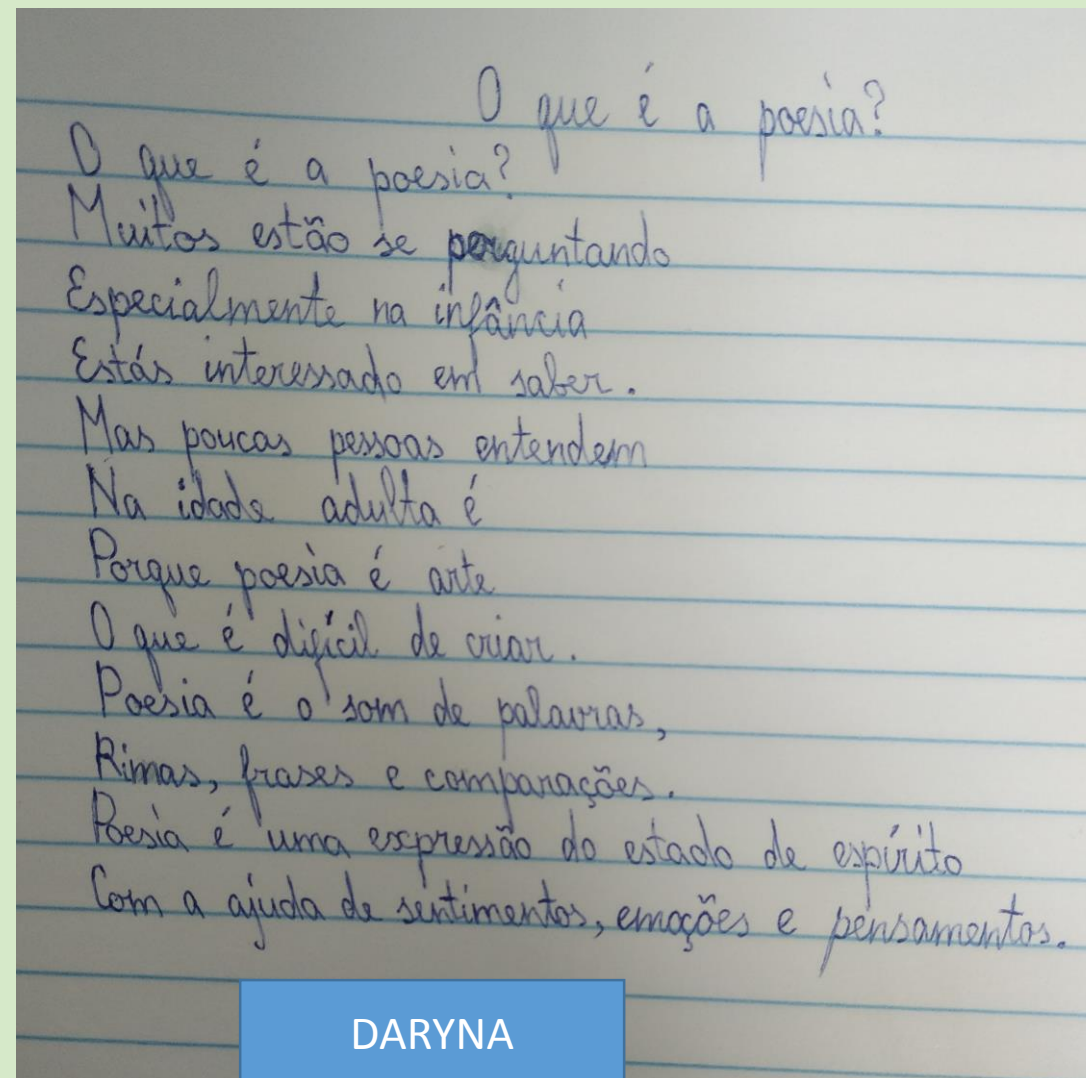 O que é a poesia?
O que é a poesia?
Muitos estão se perguntando
Especialmente na infância
Estás interessado em saber.
Mas poucas pessoas entendem
Na idade adulta é
Porque poesia é arte
O que é difícil de criar.
Poesia é o som de palavras,
Rimas, frases e comparações.
Poesia é uma expressão do estado de espírito
Com a ajuda de sentimentos, emoções e pensamentos.
DARYNA